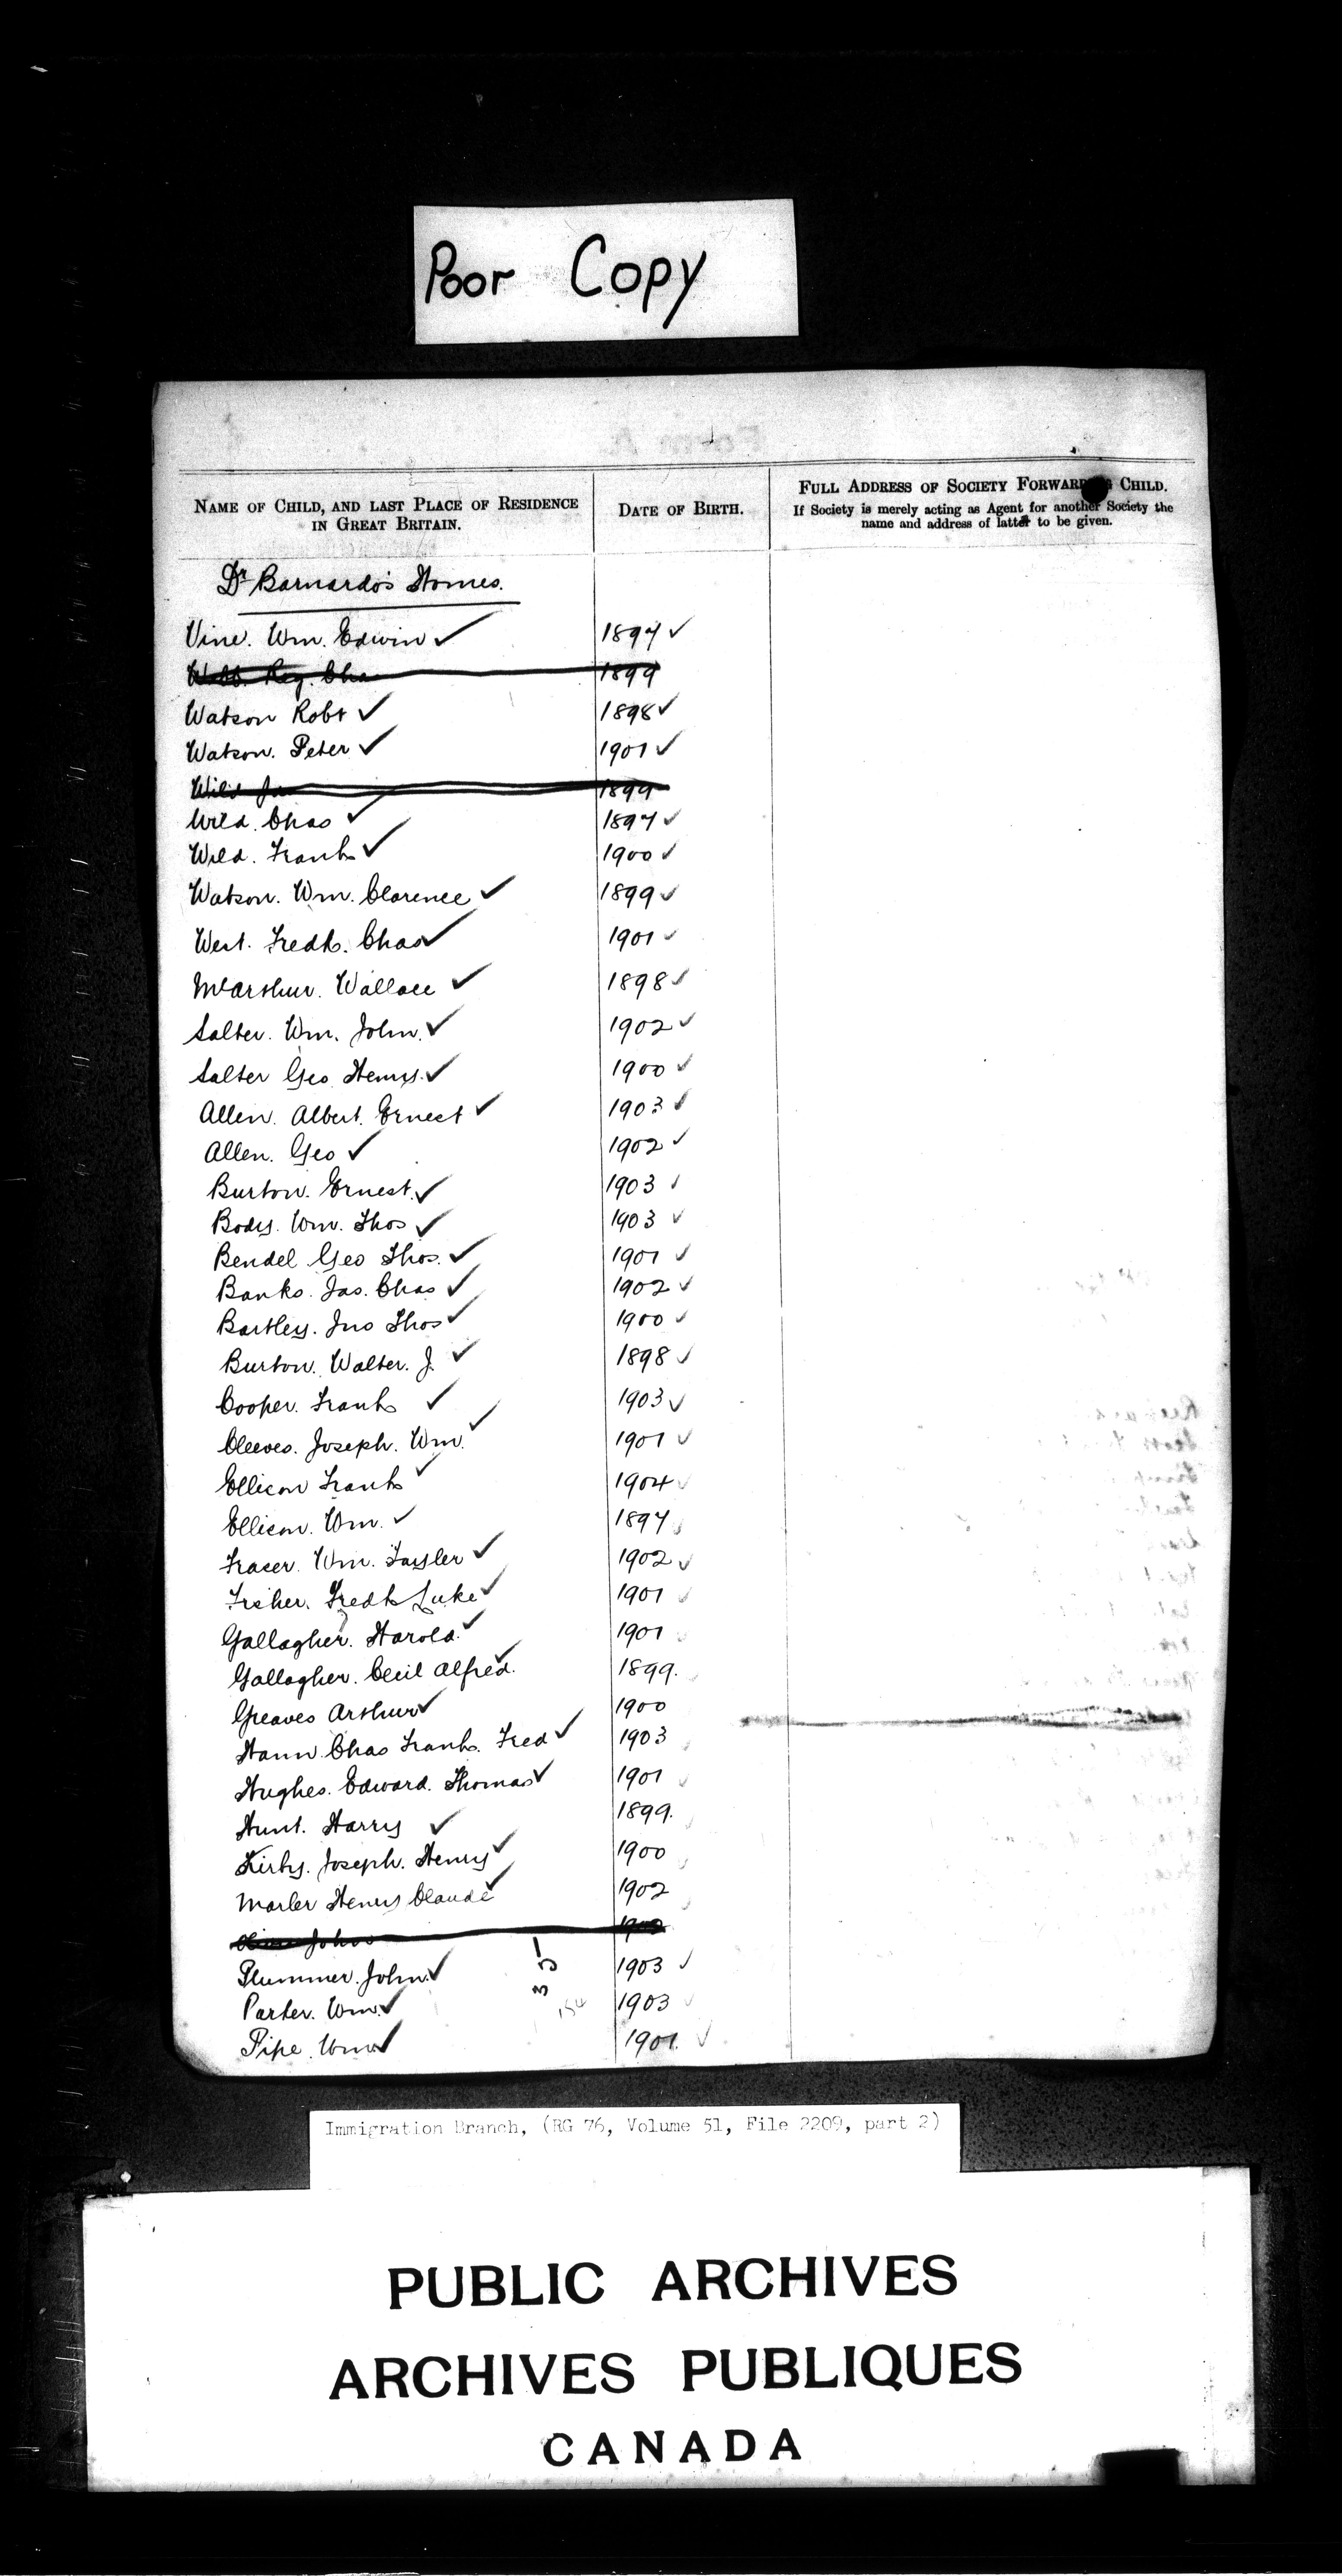 Poor Copy
NAME OF CHILD, AND LAST PLACE OF RESIDENCE
IN GREAT BRITAIN.
DATE OF BIRTH.
FULL ADDRESS OF SOCIETY FORWARDING CHILD.
If Society is merely acting as Agent for another Society the
name and address of latter to be given.
Dr Barnardo's Homes.
Vine. Wm. Edwin ✓ 1897 ✓
Webb. Reg. Cha 1899
Watson Robt ✓ 1898 ✓
Watson. Peter ✓ 1901 ✓
Wild Ja 1899
Wild. Chas ✓ 1897 ✓
Wild. Frank ✓ 1900 ✓
Watson. Wm. Clarence ✓ 1899 ✓
West. Fredk. Chas ✓ 1901 ✓
McArthur. Wallace ✓ 1898 ✓
Salter. Wm. John. ✓ 1902 ✓
Salter Geo Henry. ✓ 1900 ✓
Allen. Albert. Ernest ✓ 1903 ✓
Allen. Geo ✓ 1902 ✓
Burton. Ernest. ✓ 1903 ✓
Body. Wm. Thos ✓ 1903 ✓
Bendel Geo Thos. ✓ 1901 ✓
Banks. Jas. Chas ✓ 1902 ✓
Bartley. Jno Thos ✓ 1900 ✓
Burton. Walter. J. ✓ 1898 ✓
Cooper. Frank ✓ 1903 ✓
Cleeves. Joseph. Wm. ✓ 1901 ✓
Ellison Frank ✓ 1904 ✓
Ellison. Wm. ✓ 1897 ✓
Fraser. Wm. Taylor ✓ 1902 ✓
Fisher. Fredk Luke ✓ 1901 ✓
Gallagher. Harold. ✓ 1901 ✓
Gallagher. Cecil Alfred. ✓ 1899.
Greaves Arthur ✓ 1900
Hann. Chas Frank. Fred ✓ 1903
Hughes. Edward. Thomas ✓ 1901 ✓
Hunt. Harry ✓ 1899.
Kirby. Joseph. Henry ✓ 1900
Marler Henry Claude ✓ 1902
John 1902
Plummer. John. ✓ 1903 ✓
Parter. Wm. ✓ 1903 ✓
Pipe. Wm ✓ 1901. ✓
35
Immigration Branch, (RG 76, Volume 51, File 2209, part 2)
PUBLIC ARCHIVES
ARCHIVES PUBLIQUES
CANADA